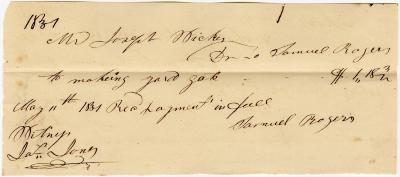 1831
Mr Joseph Wicker
Dr to Samuel Rogers
to making yard gate $1.18¾
May 11th 1831 Recd payment in full
Samuel Rogers
Witness
Jones